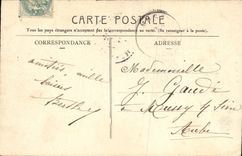 CARTE POSTALE
Tous les pays étrangers n'acceptent pas la correspondance au verso. (Se renseigner à la poste).
CORRESPONDANCE
ADRESSE
amitiés, mille
Berthe
Mademoiselle
J. Gaudé
à Mussy s/ Seine
Aube